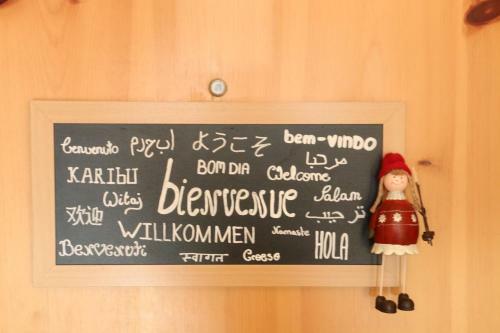 benvenuto ברוך הבא ようこそ bem-vindo
KARIBU BOM DIA Welcome مرحبا
Witaj bienvenue Salam
欢迎 ترحيب
WILLKOMMEN Namaste HOLA
Benvenuti स्वागत